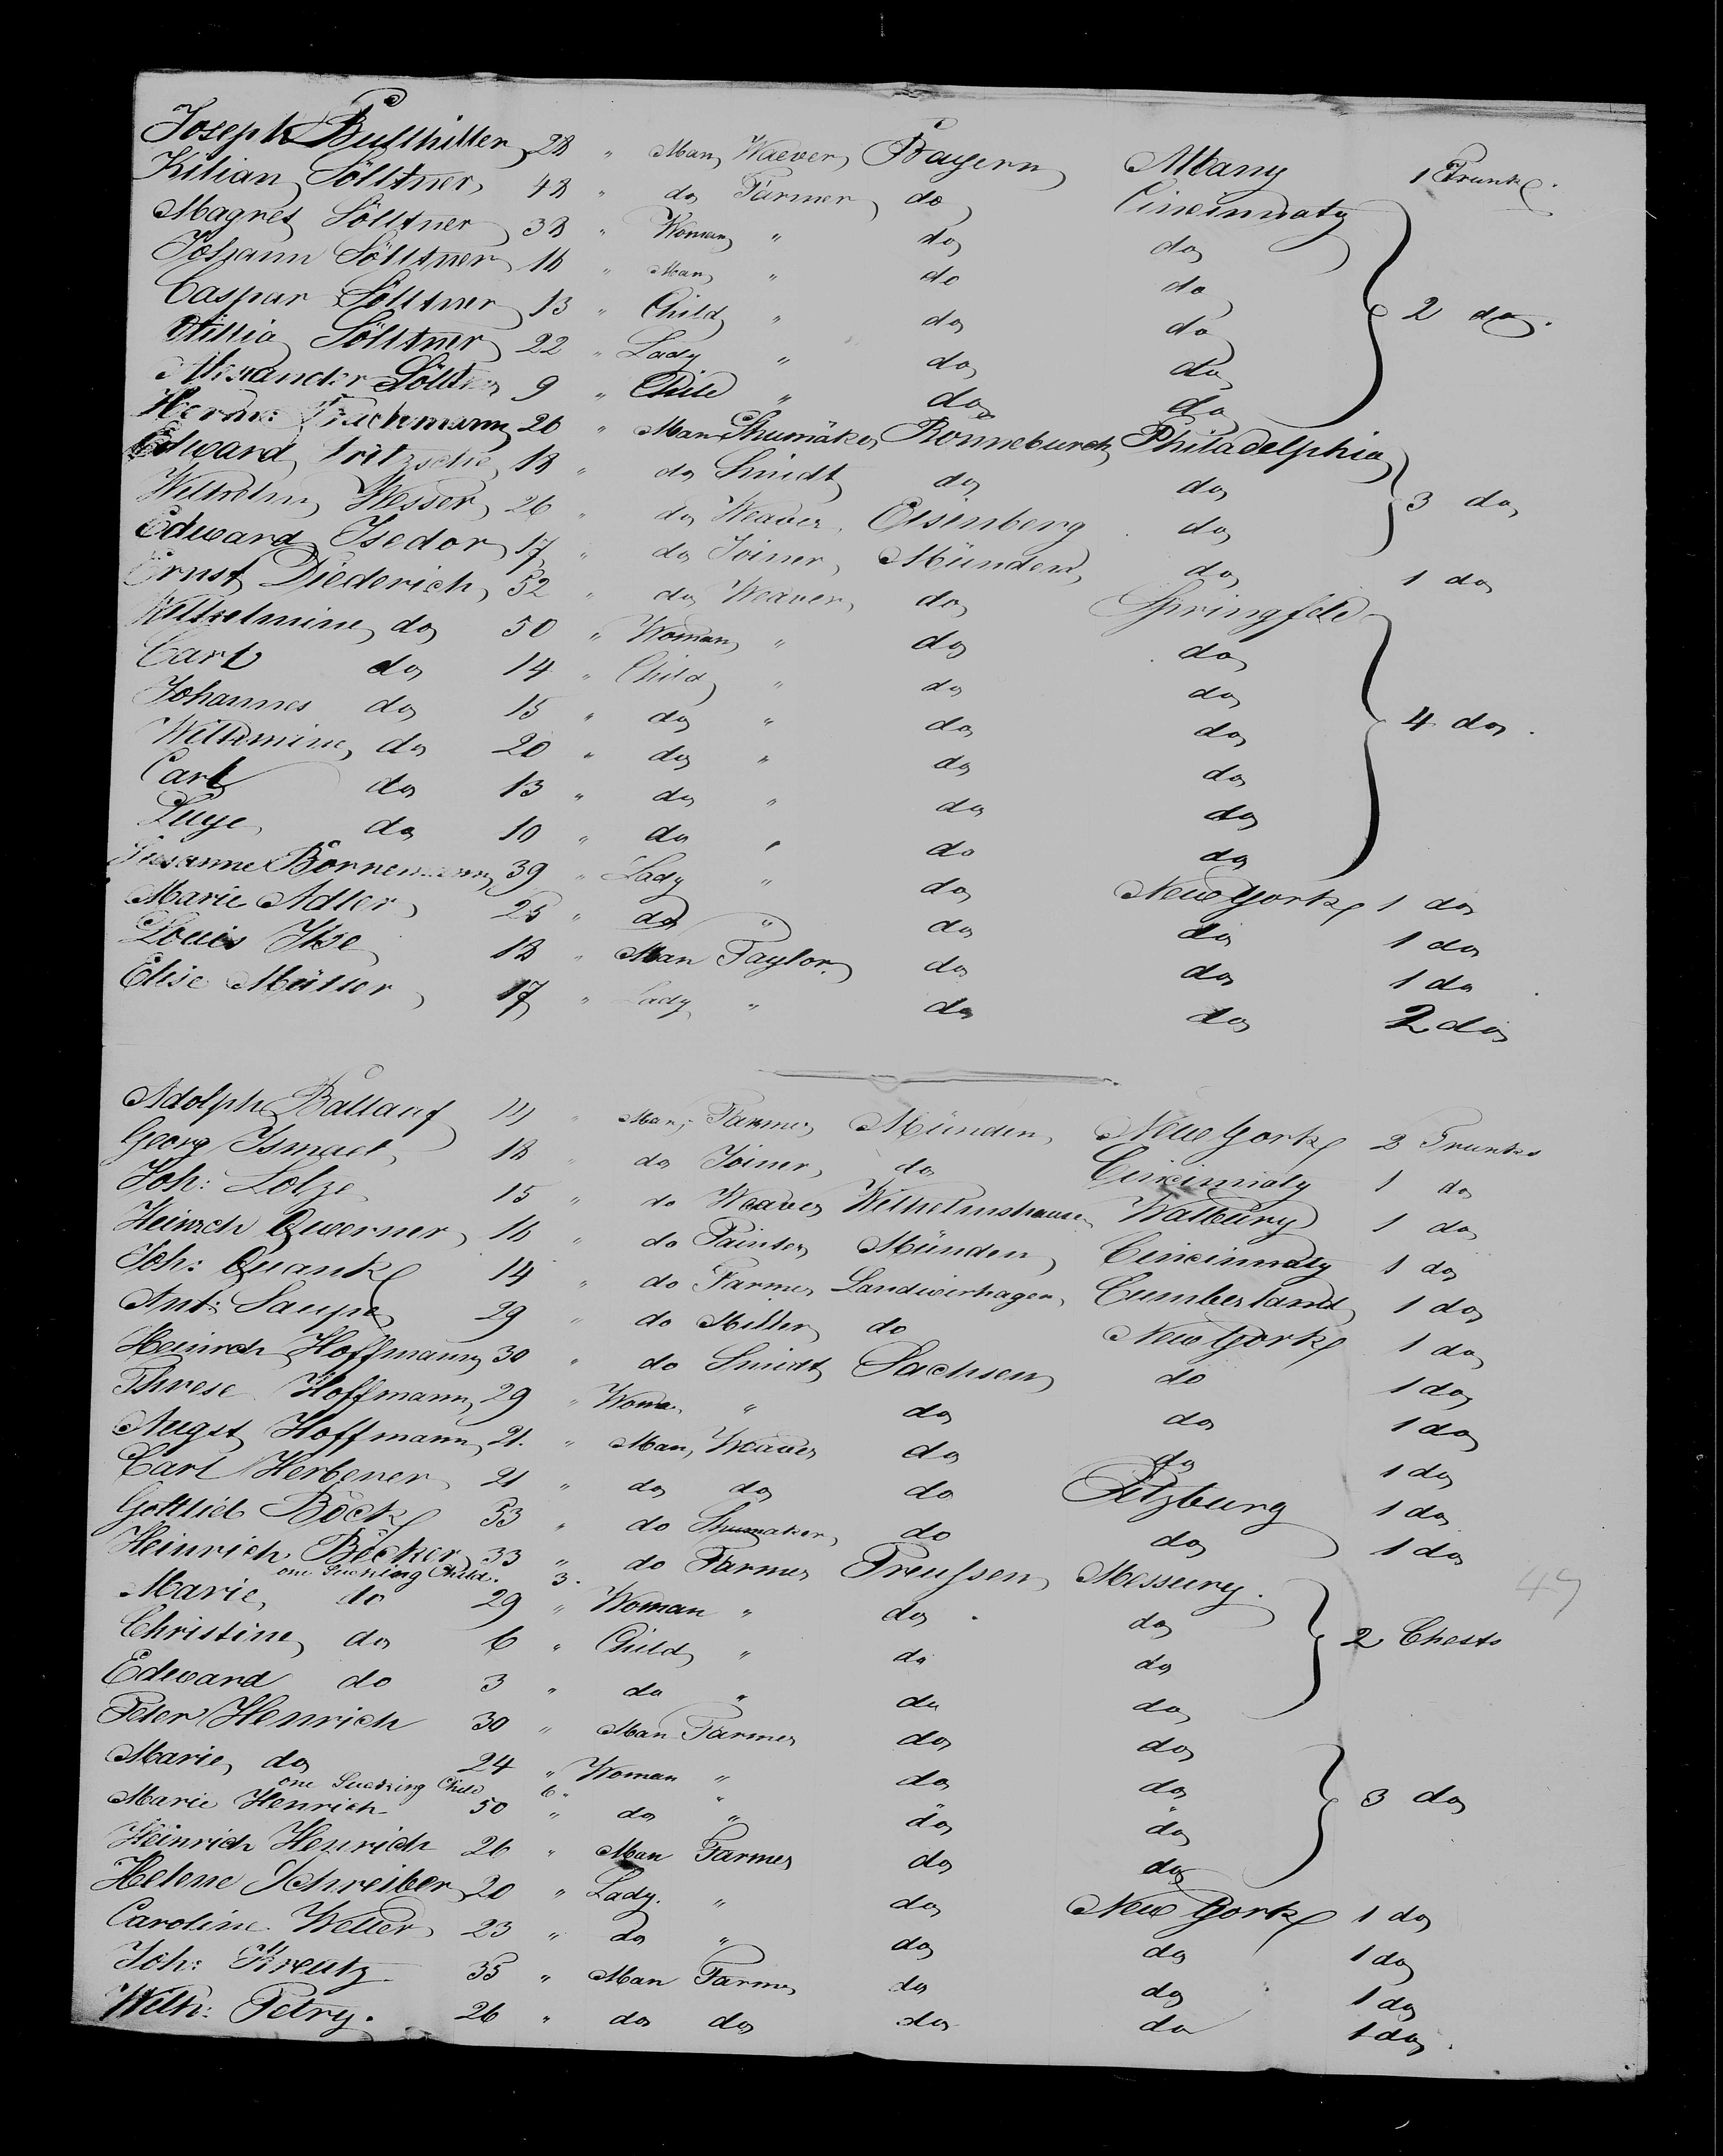 Joseph Bullhiller 28 " Man Waever Bayern Albany 1 Trunk.
Kilian Sölltner 48 " do Farmer do Cincinnaty
Magret Sölltner 38 " Woman " do do
Johann Sölltner 18 " Man " do do
Caspar Sölltner 13 " Child " do do 2 do.
Ottillia Sölltner 22 " Lady " do do
Alexander Sölltner 9 " Child " do do
Herm: 26 " Man Shumäker Ronneburch Philadelphia
Edward Fritzsche 18 " do Smidt do do 3 do
Wilhelm Wesser 26 " do Weaver Eisenberg do
Edward Isedor 17 " do Joiner Münden do 1 do
Ernst Diederich 52 " do Weaver do Springfeld
Wilhelmine do 50 " Woman " do do
Carl do 14 " Child " do do
Johannes do 15 " do " do do 4 do.
Willemine do 20 " do " do do
Carl do 13 " do " do do
Luye do 10 " do " do do
Susanne Bornemann 39 " Lady " do New York 1 do
Marie Adler 25 " do " do do 1 do
Louis Ilse 18 " Man Taylor do do 1 do
Elise Müller 17 " Lady " do do 2 do
Adolph Ballauf " Man Farmer Münden New York 2 Trunks
Georg Ismael 18 " do Joiner do Cincinnaty 1 do
Joh: Lolze 15 " do Weaver Wilhelmshausen Walbury 1 do
Heinrch Qwerner 18 " do Painter Münden Cincinnaty 1 do
Joh: Quank 14 " do Farmer Landwerhagen Cumberland 1 do
Ant: Saupe 29 " do Miller do New York 1 do
Heinrch Hoffmann 30 " do Smidt Sachsen do 1 do
Threse Hoffmann 29 " Woman " do do 1 do
Augst Hoffmann 21. " Man Weaver do do 1 do
Carl Herbener 21 " do do do Pitzburg 1 do
Gottlieb Böck 53 " do Shumaker do do 1 do
Heinrich Böcker 33 " do Farmer Preussen Messury.
one Sucking Child. 3.
Marie do 29 " Woman " do do
Christine do 6 " Child " do do 2 Chests
Edward do 3 " do " do do
Peter Henrich 30 " Man Farmer do do
Marie do 24 " Woman " do do
one Sucking Child 6. " " "
Marie Henrich 50 " do " do do 3 do
Heinrich Henrich 26 " Man Farmer do do
Helene Schreiber 20 " Lady. " do New York 1 do
Caroline Weller 23 " do " do do 1 do
Joh: Kreutz 35 " Man Farmer do do 1 do
Wilh: Petry. 26 " do do do do 1 do.